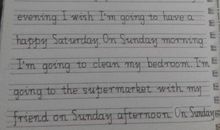 evening. I wish I'm going to have a
happy Saturday. On Sunday morning
I'm going to clean my bedroom. I'm
going to the supermarket with my
friend on Sunday afternoon. On Sunday